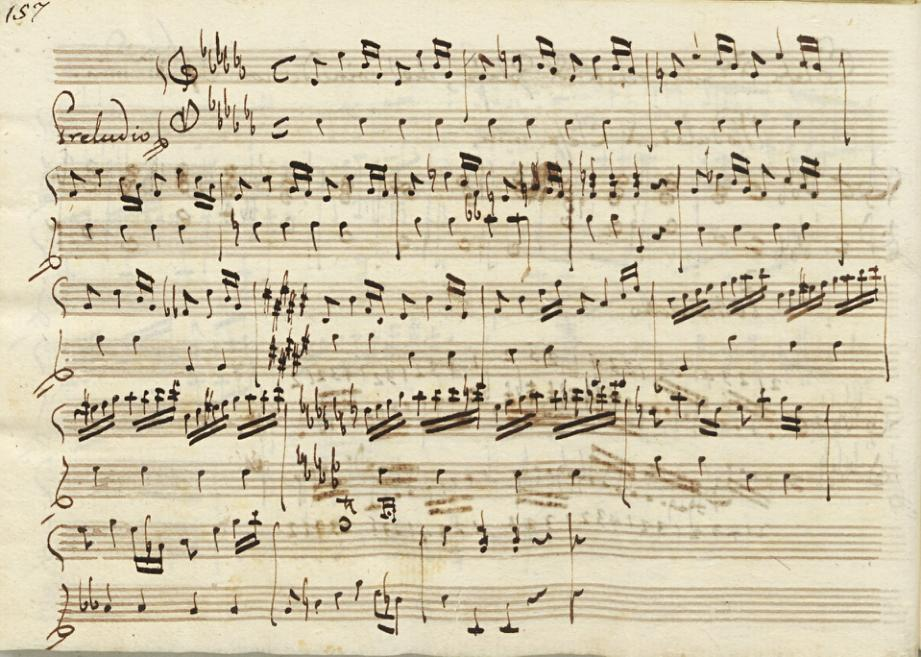 157
Preludio